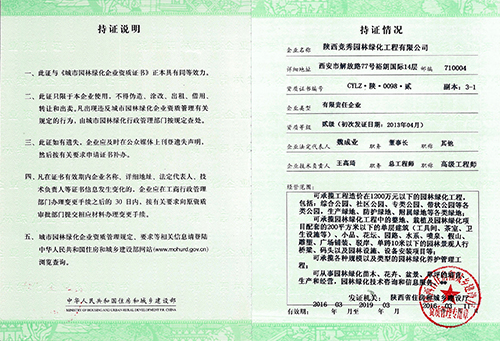 持证说明
一、此证与《城市园林绿化企业资质证书》正本具有同等效力。
二、此证只限于本企业使用，不得伪造、涂改、出租、借用、
转让和出卖，凡出现违反城市园林绿化企业资质管理有关
规定的行为，由城市园林绿化行政管理部门按规定查处。
三、此证如有遗失，企业应及时在公众媒体上刊登遗失声明，
然后按有关要求申请证书补办。
四、凡在证书有效期内企业名称、详细地址、法定代表人、技
术负责人等证书信息发生变化的，企业应在工商行政管理
部门办理变更手续之后的 30 日内，按有关要求向原资质
审批部门提交相应材料办理变更手续。
五、城市园林绿化企业管理规定、要求等相关信息请登陆
中华人民共和国住房和城乡建设部网站(www.mohurd.gov.cn)
浏览查询。
中华人民共和国住房和城乡建设部
MINISTRY OF HOUSING AND URBAN-RURAL DEVELOPMENT, P.R. CHINA
持证情况
企业名称 陕西竞秀园林绿化工程有限公司
详细地址 西安市解放路77号裕朗国际14层 邮编 710004
资质证书编号 CYLZ·陕·0098·贰 副本：3-1
企业类型 有限责任企业
资质等级 贰级（初次发证日期：2013年04月）
企业法定代表人 魏成业 职务 董事长 职称 其他
企业技术负责人 王高琦 职务 总工程师 职称 高级工程师
经营范围：
可承揽工程造价在1200万元以下的园林绿化工程，
包括：综合公园、社区公园、专类公园、带状公园等各
类公园，生产绿地、防护绿地、附属绿地等各类绿地；
可承揽园林绿化工程中的整地、栽植及园林绿化项
目配套的200平方米以下的单层建筑（工具间、茶室、卫
生设施等）、小品、花坛、园路、水系、喷泉、假山、
雕塑、广场铺装、驳岸、单跨10米以下的园林景观人行
桥梁、码头以及园林设施、设备安装项目等；
可承揽各种规模以及类型的园林绿化养护管理工
程；
可从事园林绿化苗木、花卉、盆景、草坪的培育、
生产和经营，园林绿化技术咨询和信息服务。
发证机关： 陕西省住房和城乡建设厅
有效期： 2016 年 03 月 2019 年 03 月 2016 年 03 月 11 日